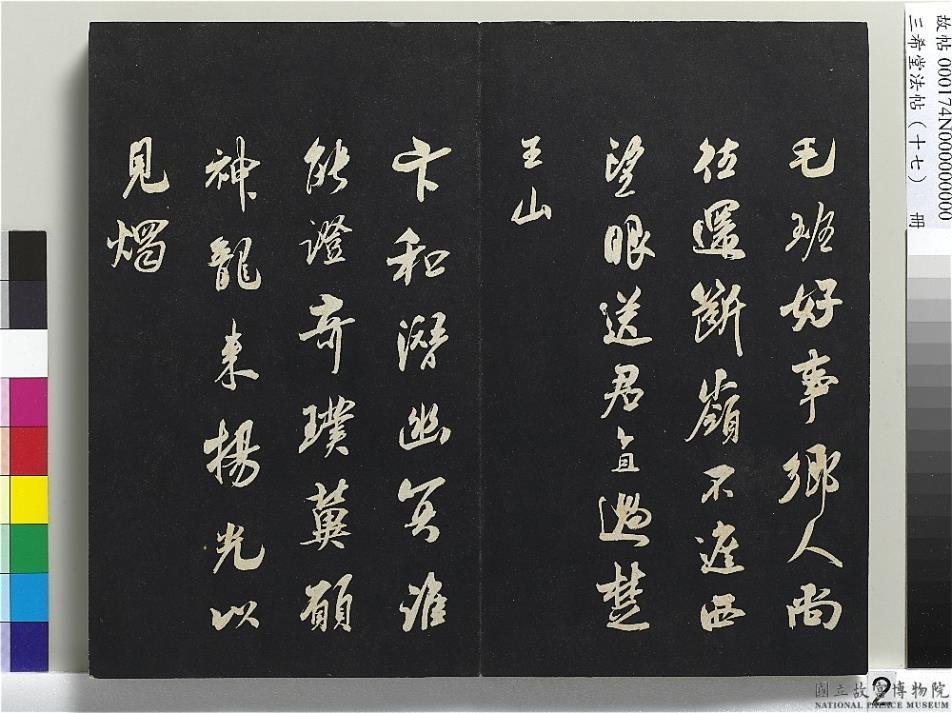 毛班好事鄉人尚
伍還斷嶺不遮西
望眼送君直過楚
王山
卞和潛幽冥誰
能證奇璞冀願
神龍來揚光以
見燭
故帖 000174N000000000
三希堂法帖(十七) 冊
2
國立故宮博物院
NATIONAL PALACE MUSEUM